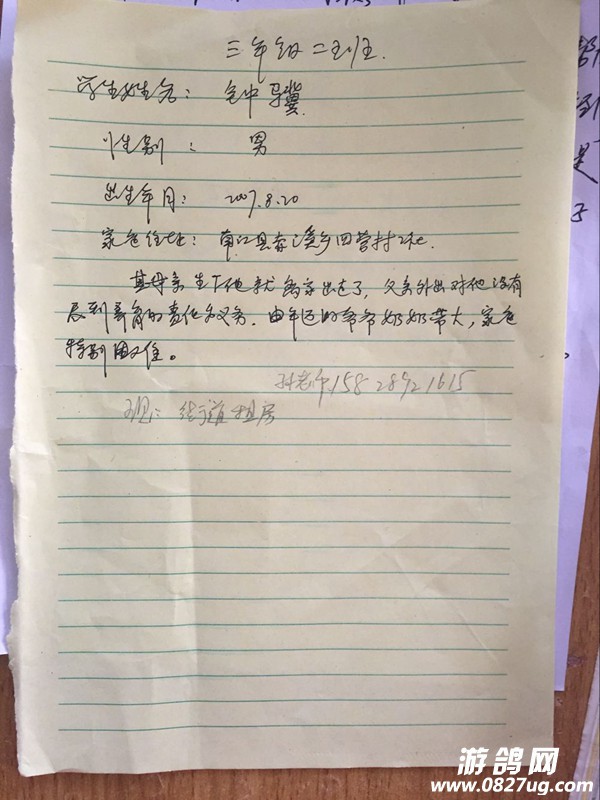 三年级二班.
学生姓名: 骥
性别: 男
出生年月: 2007.8.20
家庭住址: 南江县 溪乡四营村2社.
其母亲生下他就离家出走了, 父亲外出对他没有
尽到养育的责任和义务. 由年迈的爷爷奶奶带大, 家庭
特别困难。
老师15828921615
现: 街道租房
游鸽网
www.0827ug.com